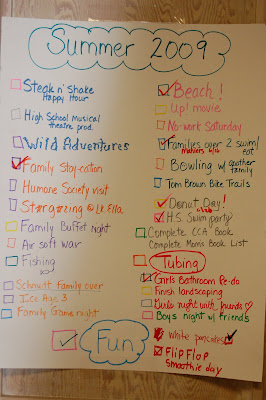 Summer 2009
Steak n' Shake
Happy Hour
High School musical
theatre prod.
Wild Adventures
Family Stay-cation
Humane Society visit
Stargazing @ Lk Ella
Family Buffet night
Air soft war
Fishing
Schmitt Family over
Ice Age 3
Family Game night
Fun
Beach!
Up! movie
No-work Saturday
Families over 2 swim/
eat
Bowling w/ another
family
Tom Brown Bike Trails
Donut Day!
H.S. Swim party
Complete CCA Book
Complete Mom's Book List
Tubing
Girls Bathroom Re-do
Finish landscaping
Girls night with friends
Boys night w/ friends
White pancakes
Flip Flop
Smoothie day